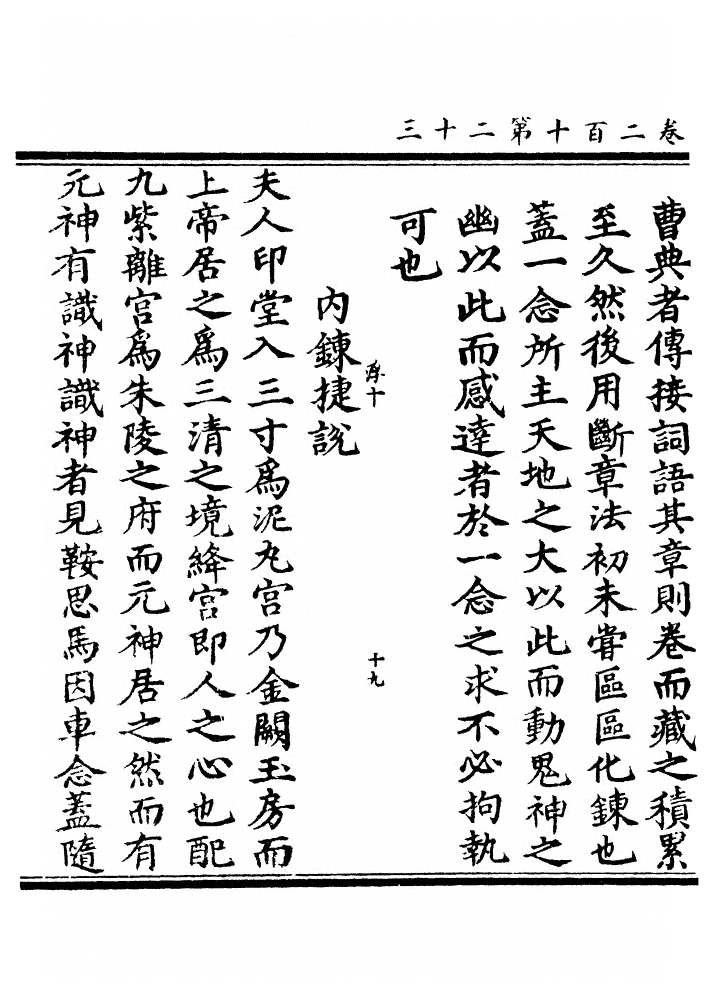 卷二百十第二十三
曹典者傳接詞語其章則卷而藏之積累
至久然後用斷章法初未甞區區化鍊也
蓋一念所主天地之大以此而動鬼神之
幽以此而感達者於一念之求不必拘執
可也
十
十九
內鍊捷說
夫人印堂入三寸爲泥丸宮乃金闕玉房而
上帝居之爲三清之境絳宮即人之心也配
九紫離宮爲朱陵之府而元神居之然而有
元神有識神識神者見鞍思馬因車念蓋隨